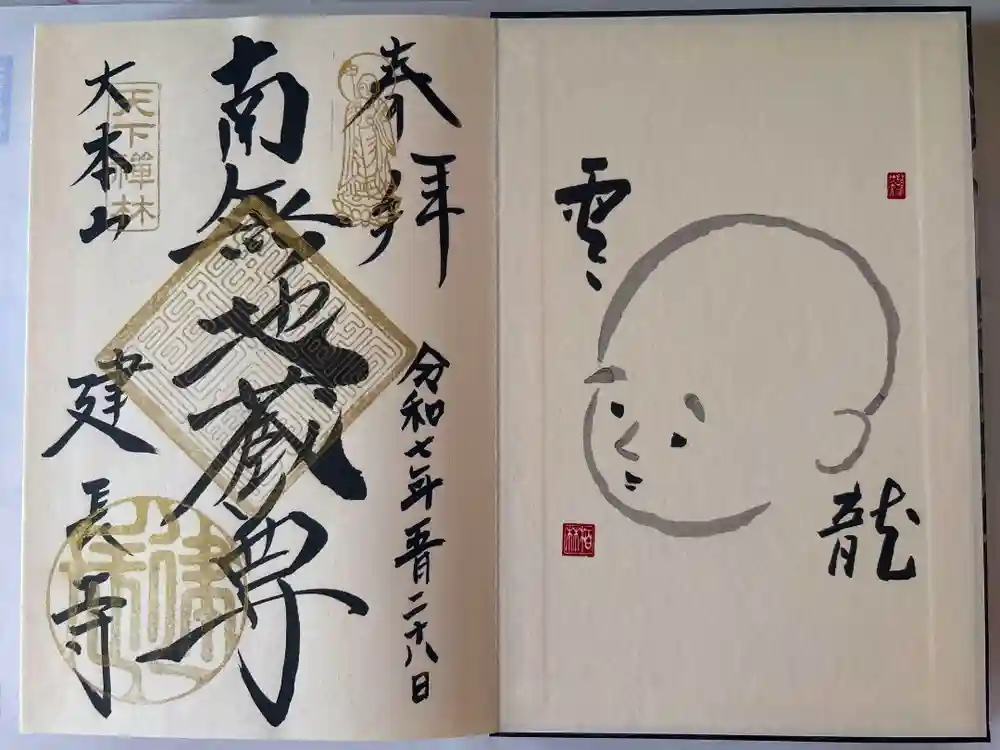 雲
龍
奉拝
令和七年五月二十八日
南無地蔵尊
大本山
建長寺
天下禅林